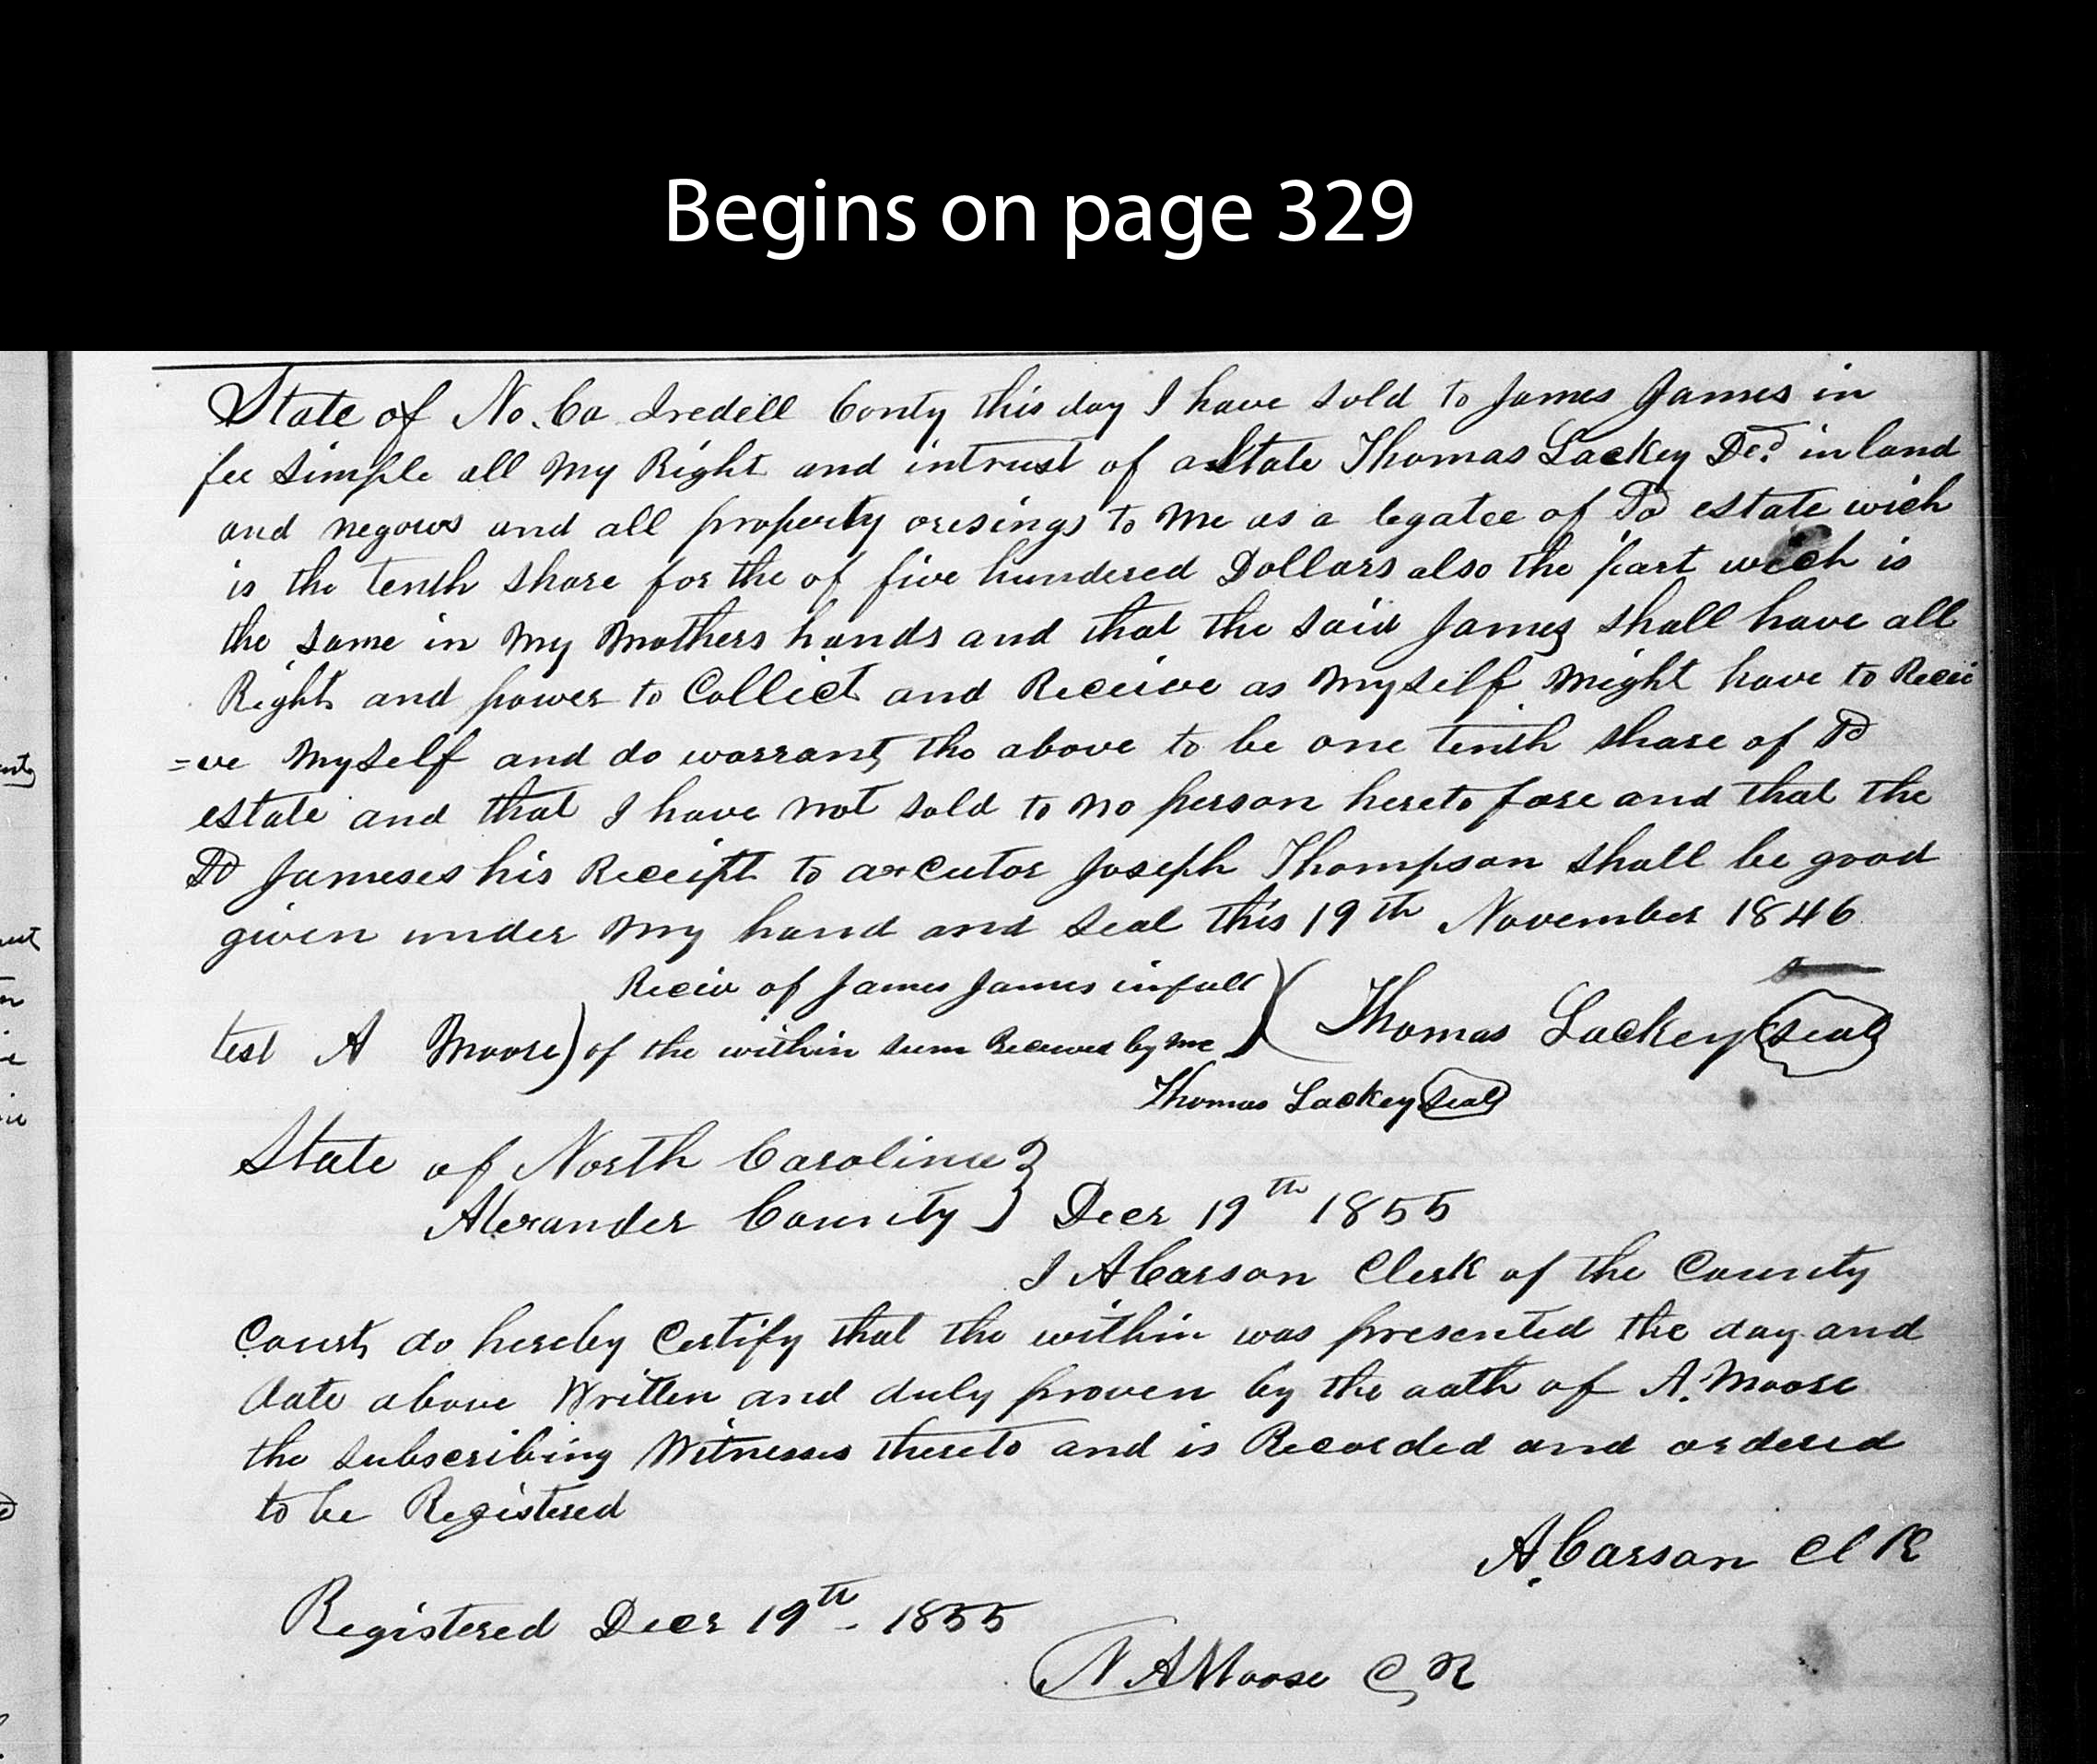 Begins on page 329
State of No. Ca Iredell Conty this day I have sold to James James in
fee simple all my Right and intrust of aState Thomas Lackey Decd. in land
and negows and all property oresings to me as a legatee of Sd estate wich
is the tenth share for the of five hundered Dollars also the part wich is
the same in my mothers hands and that the said James shall have all
Right and power to Collect and Receive as myself might have to Recei
=ve myself and do warrant the above to be one tenth share of Sd
estate and that I have not sold to no person hereto fore and that the
Sd Jameses his Receipt to axcutor Joseph Thompson shall be good
given under my hand and seal this 19th November 1846
Reciv of James James in full
test A Moore) of the within sum Received by me ) ( Thomas Lackey (seal)
Thomas Lackey (seal)
State of North Carolina }
Alexander County } Decr 19th 1855
I A Carson Clerk of the County
Court do hereby Certify that the within was presented the day and
date above Written and duly proven by the oath of A. Moose
the subscribing Witnesses thereto and is Recorded and ordered
to be Registered
A. Carson Cl K
Registered Decr 19th - 1855
N A Moose C, R